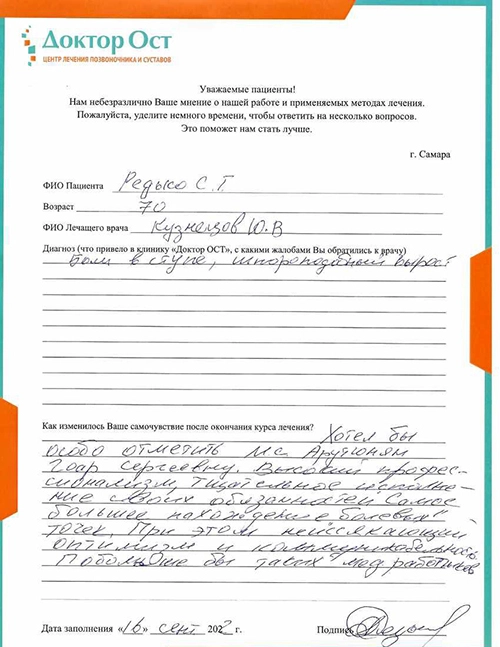 Доктор Ост
ЦЕНТР ЛЕЧЕНИЯ ПОЗВОНОЧНИКА И СУСТАВОВ
Уважаемые пациенты!
Нам небезразлично Ваше мнение о нашей работе и применяемых методах лечения.
Пожалуйста, уделите немного времени, чтобы ответить на несколько вопросов.
Это поможет нам стать лучше.
г. Самара
ФИО Пациента Редько С.Г
Возраст 70
ФИО Лечащего врача Кузнецов Ю.В
Диагноз (что привело в клинику «Доктор ОСТ», с какими жалобами Вы обратились к врачу)
Боли в ступе, шпороподобный вырост
Как изменилось Ваше самочувствие после окончания курса лечения? Хотел бы
особо отметить м/с Арутюнян
Гоар Сергеевну. Высокий профес-
сионализм, тщательное исполне-
ние своих обязанностей. Самое
большее нахождение "болевых"
точек. При этом неиссякающий
оптимизм и коммуникабельность
Побольше бы таких медработников
Дата заполнения «16» сент 2022 г.
Подпись